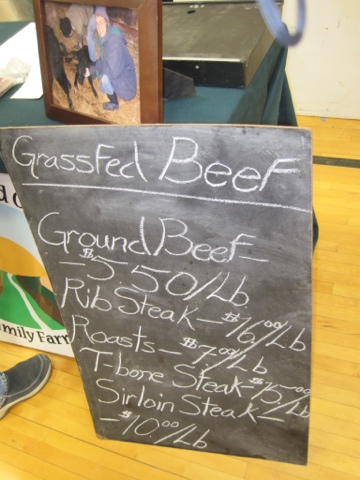 GrassFed Beef
Ground Beef –
– $5.50/Lb
Rib Steak – $16.00/Lb
Roasts – $7.00/Lb
T-bone Steak – $15.00/Lb
Sirloin Steak –
– $10.00/Lb
amily Farm